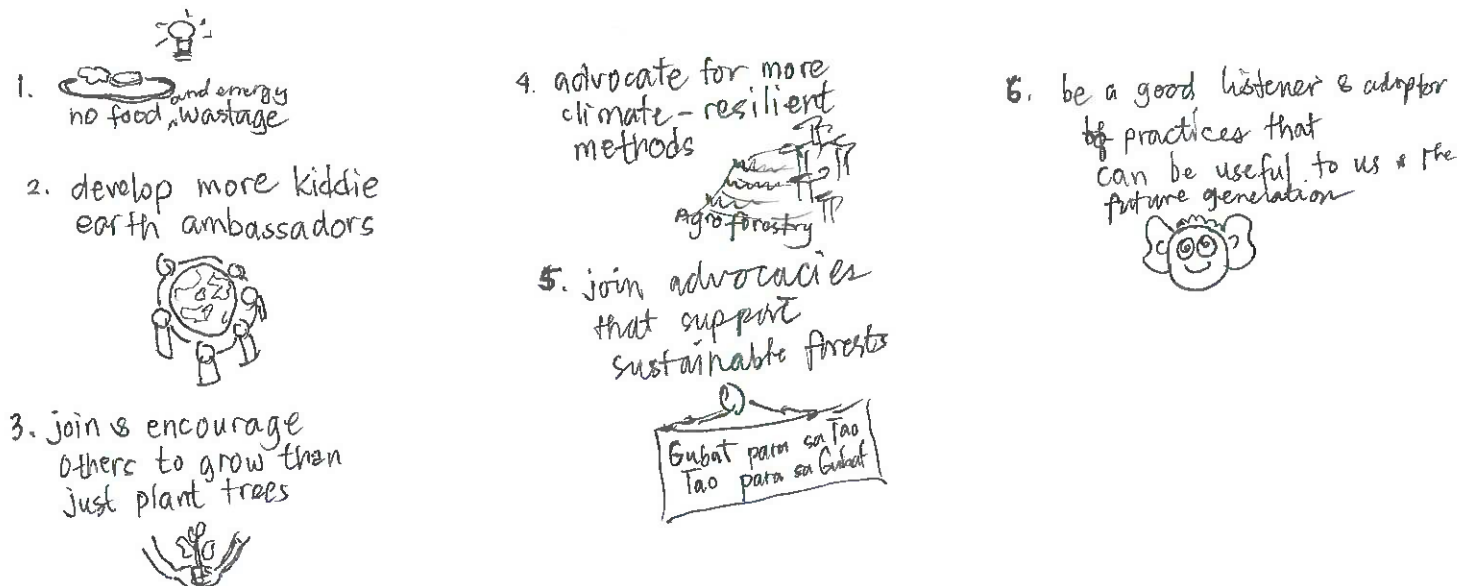 1.
and energy
no food ^ wastage
2. develop more kiddie
earth ambassadors
3. join & encourage
others to grow than
just plant trees
4. advocate for more
climate-resilient
methods
Agroforestry
5. join advocacies
that support
sustainable forests
Gubat para sa Tao
Tao para sa Gubat
6. be a good listener & adaptor
of practices that
can be useful to us & the
future generation